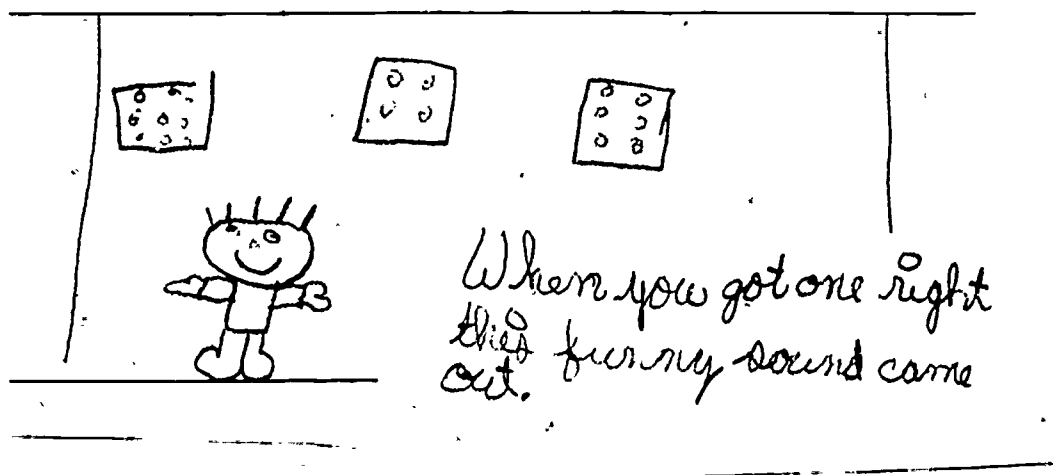 When you got one right
this funny sound came
out.